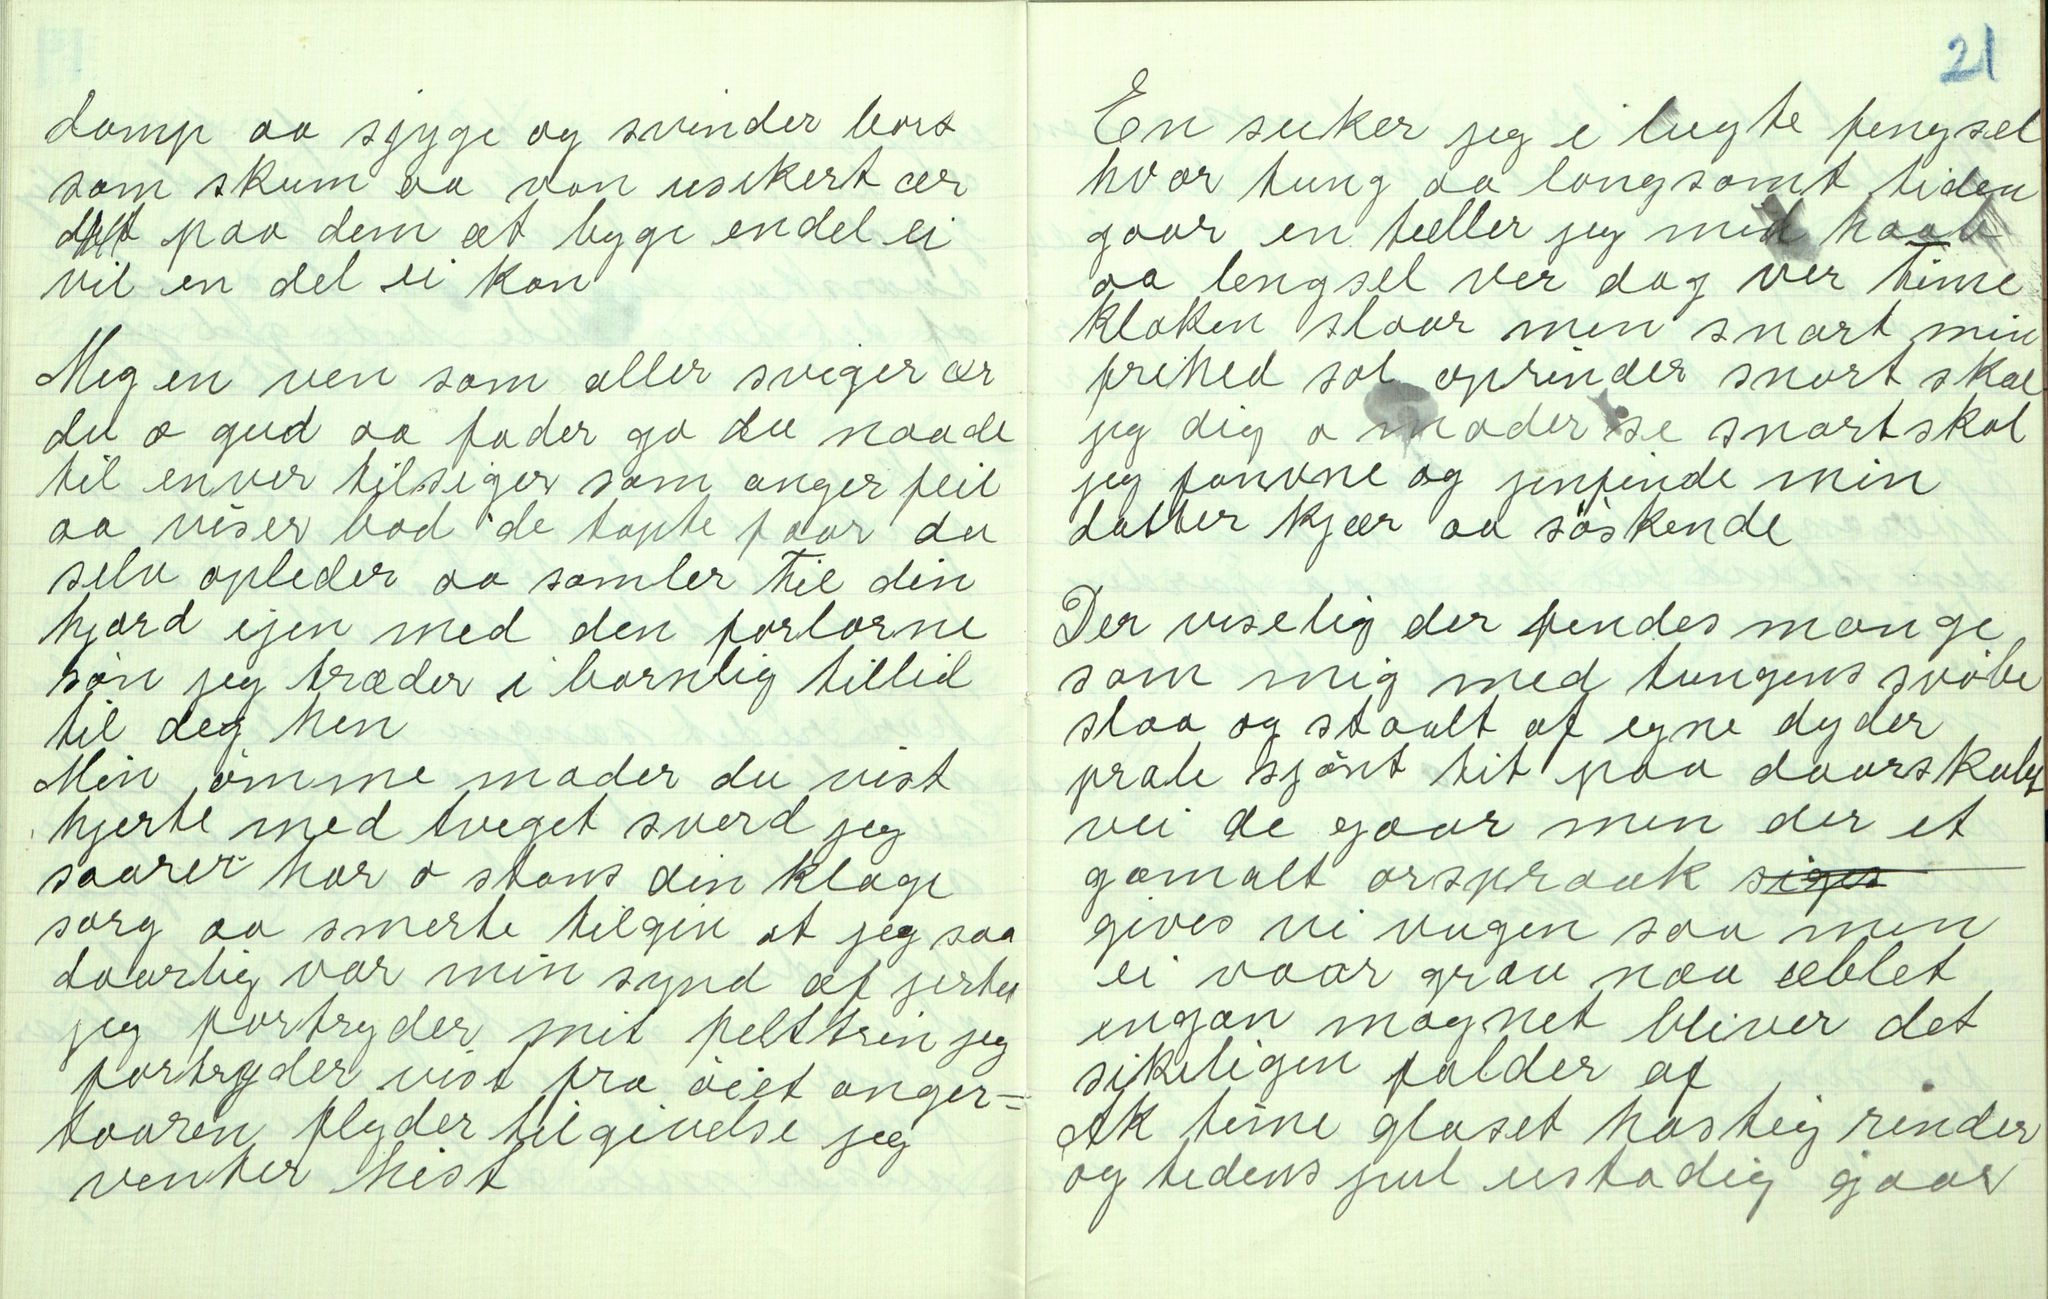 damp aa sjyge og svinder bort
som skum aa van usikert ær
det paa dem at byge endel ei
vil en del ei kan
Meg en ven som aller sviger ær
du o gud aa fader go du naade
til enver tilsiger som anger feil
aa viser bod de tapte faar du
selv opleder aa samler til din
hjord ejen med den forlorne
søn jeg træder i barnlig tillid
til deg hen
Min ømme moder du vist
hjerte med tveget sverd jeg
saarer har o stans din klage
sorg aa smerte tilgiv at jeg saa
daarlig var min synd af jertet
jeg fortryder mit feiltrin jeg
fortryder vist fra øiet anger=
taaren flyder tilgivelse jeg
venter hist
21
En suker jeg i lugte fengsel
hvor tung aa langsomt tiden
gaar en tæller jeg mid haab
aa lengsel ver dag ver time
kloken slaar men snart min
frihed sol oprinder snart skal
jeg dig o moder se snart skal
jeg favvne og jenfinde min
datter kjær aa søskende
Der viselig der fendes mange
som mig med tungens svøbe
slaa og staalt af egne dyder
prale sjønt tit paa daarskabs
vei de gaar men der et
gamalt orspraak siges
gives vi vugen saa men
ei vaar grav naa æblet
engan magnet bliver det
sikeligen falder af
Ak time glaset hastig rinder
og tidens jul ustadig gaar